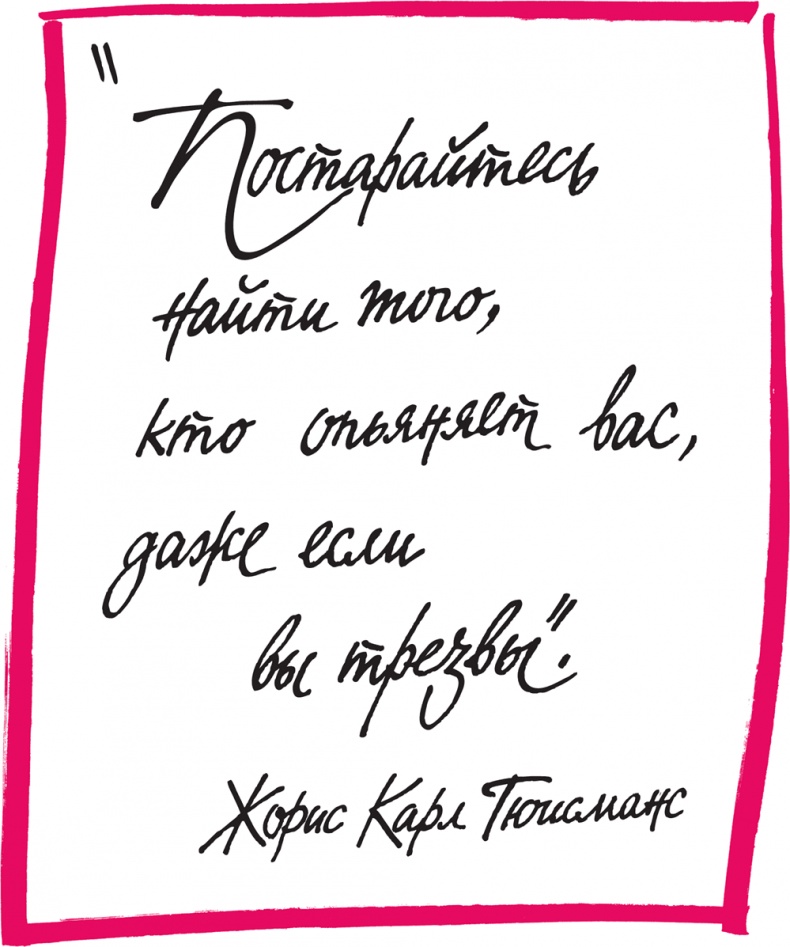 "Постарайтесь
найти того,
кто опьяняет вас,
даже если
вы трезвы".
Жорис Карл Гюисманс